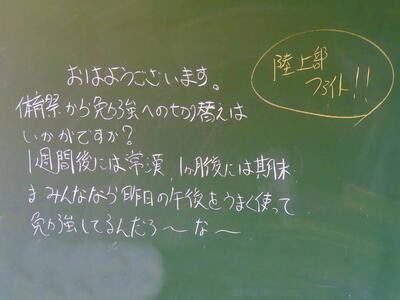 おはようございます。
体育祭から勉強への切り替えは
いかがですか?
1週間後には常漢、1ヶ月後には期末
まみんななら昨日の午後をうまく使って
勉強してるんだろ〜な〜
陸上部
ファイト!!